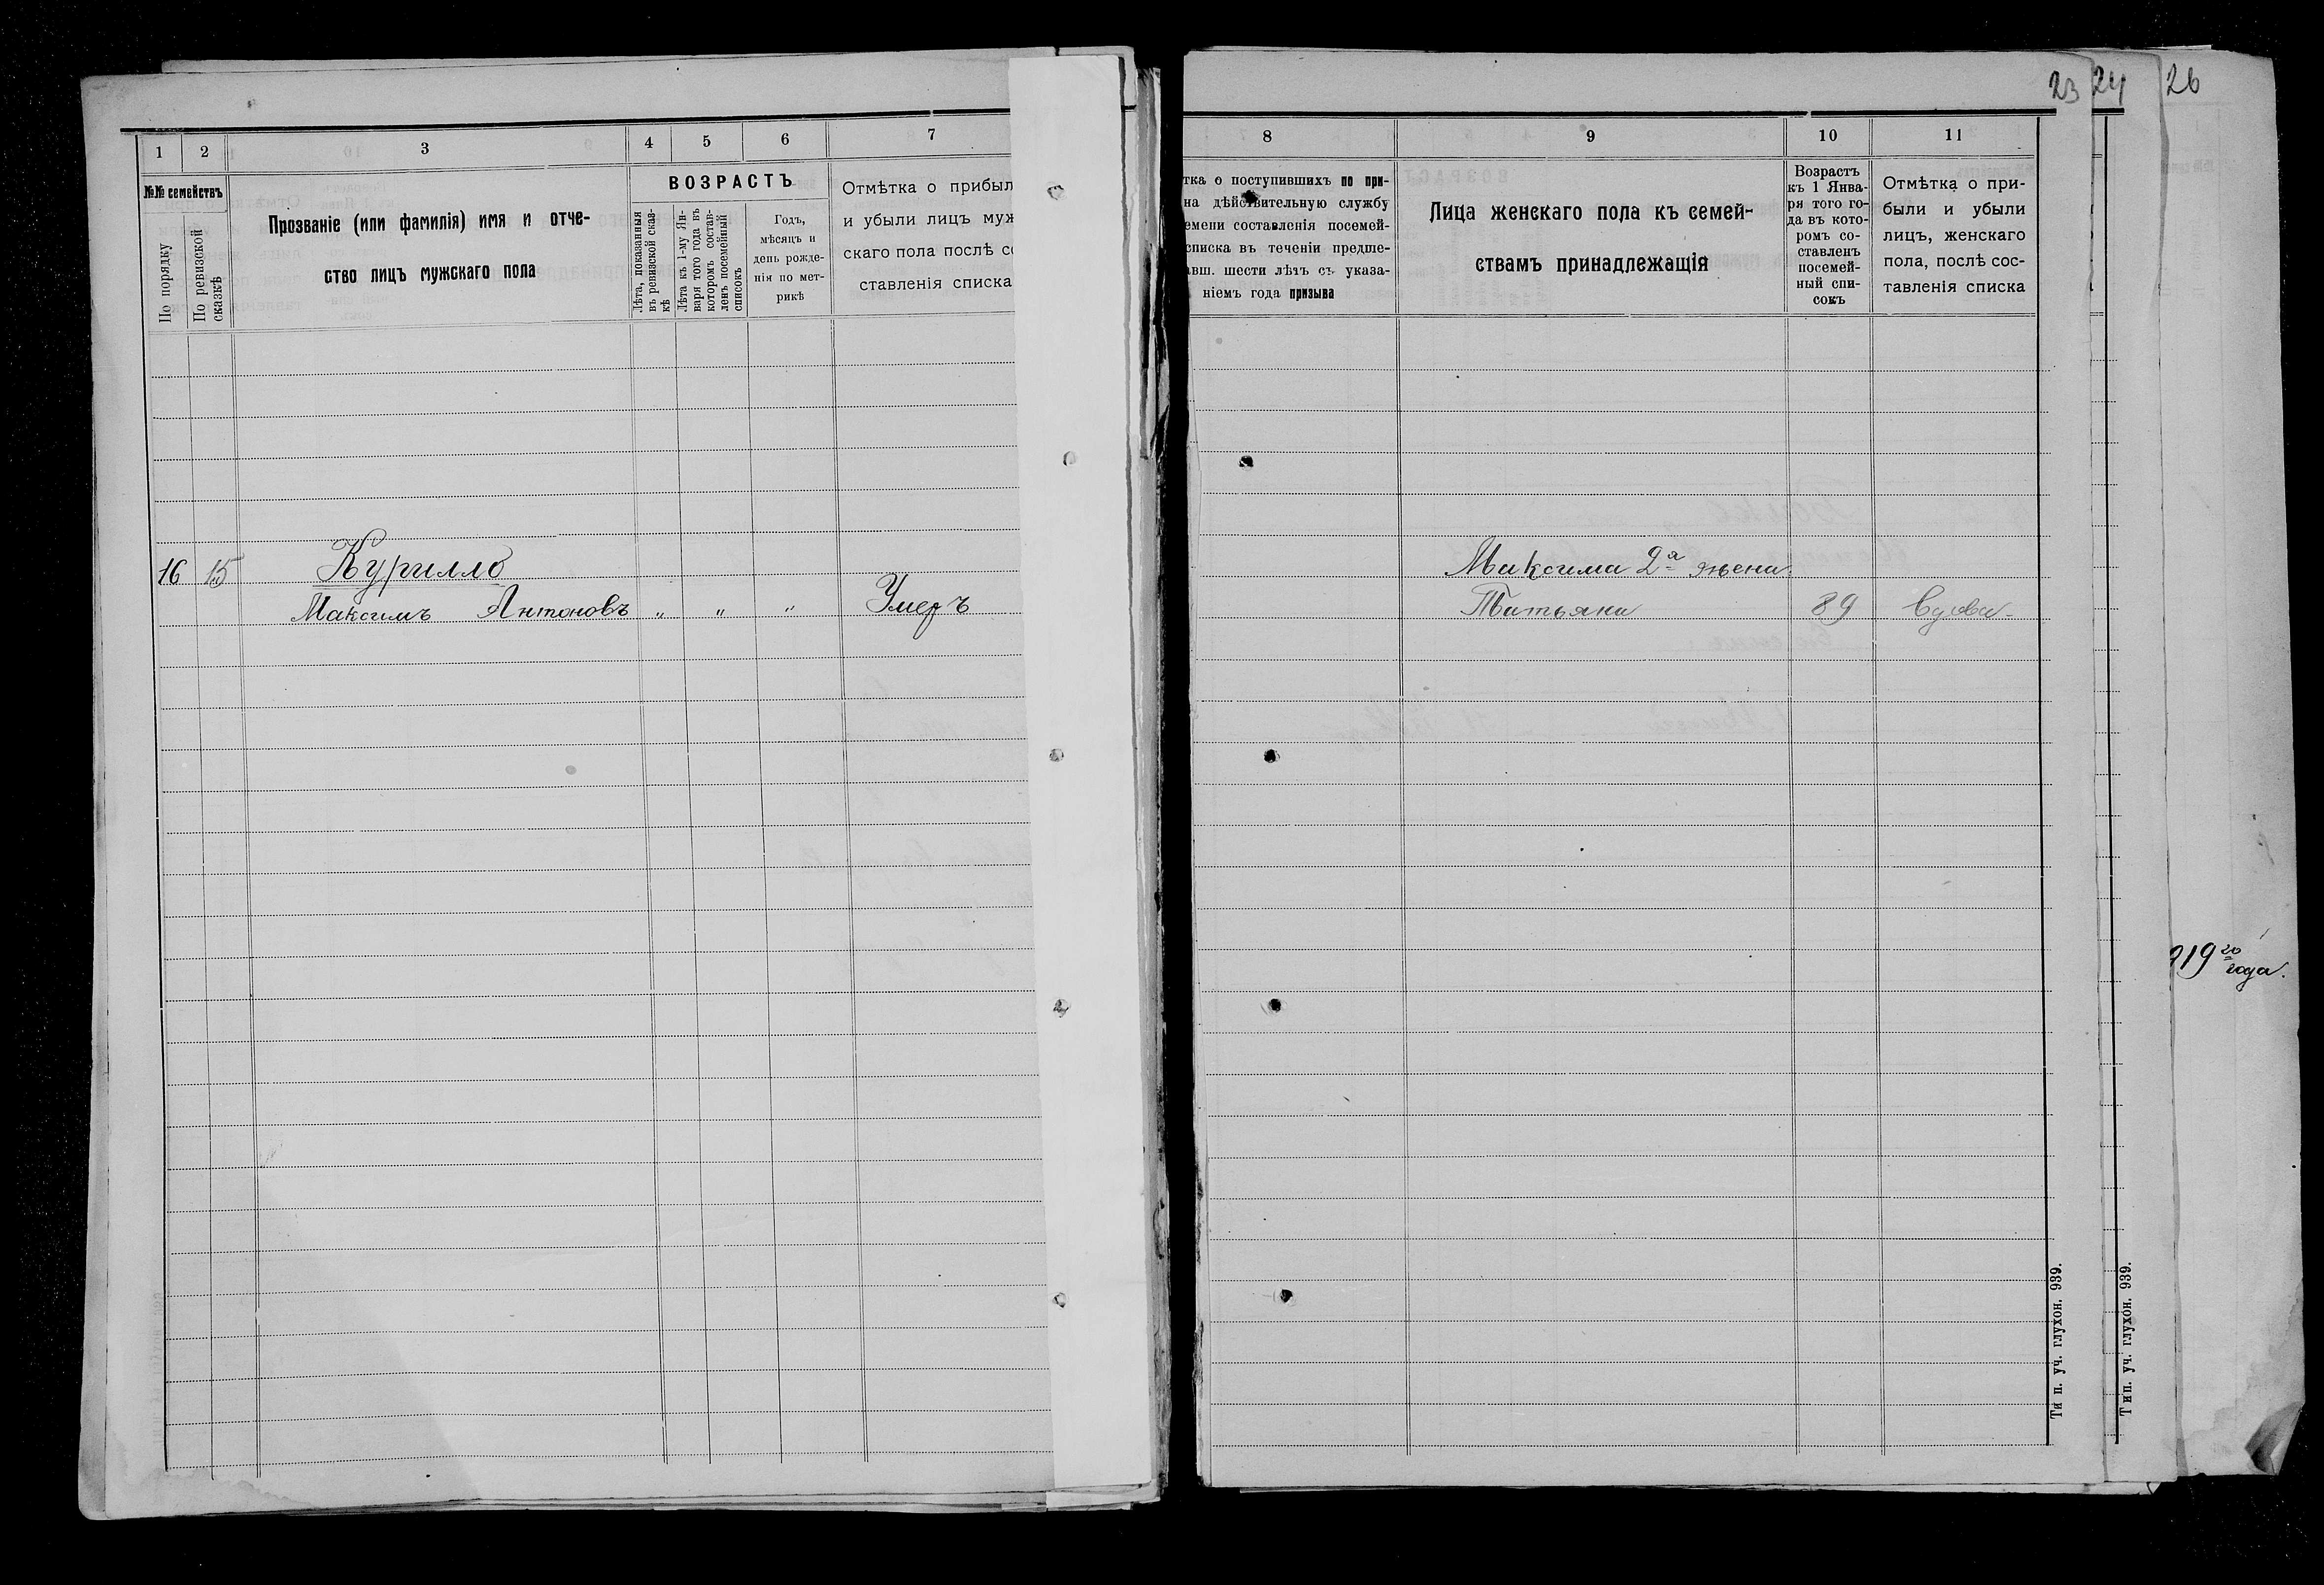 23 24 26
1 2 3 4 5 6 7
№№ семействъ
По порядку
По ревизской сказкѣ
Прозваніе (или фамилія) имя и отче-
ство лицъ мужскаго пола
ВОЗРАСТЪ
Лѣта, показанныя
въ ревизской сказ-
кѣ
Лѣта къ 1-му Ян-
варя того года въ
которомъ состав-
ленъ посемейный
списокъ
Годъ,
мѣсяцъ и
день рожде-
нія по мет-
рикѣ
Отмѣтка о прибыл
и убыли лицъ муж
скаго пола послѣ со
ставленія списка
16 15 Курилло
Максимъ Антоновъ " " " Умеръ
8 9 10 11
тка о поступившихъ по при-
на дѣйствительную службу
емени составленія посемей-
списка въ теченіи предше-
авш. шести лѣтъ съ указа-
ніемъ года призыва
Лица женскаго пола къ семей-
ствамъ принадлежащія
Возрастъ
къ 1 Янва-
ря того го-
да въ кото-
ромъ со-
ставленъ
посемей-
ный спи-
сокъ
Отмѣтка о при-
были и убыли
лицъ, женскаго
пола, послѣ сос-
тавленія списка
Максима 2а жена
Татьяна 89 Вдова
919 го
года.
Тип. уч. глухон. 939.
Тип. уч. глухон. 939.